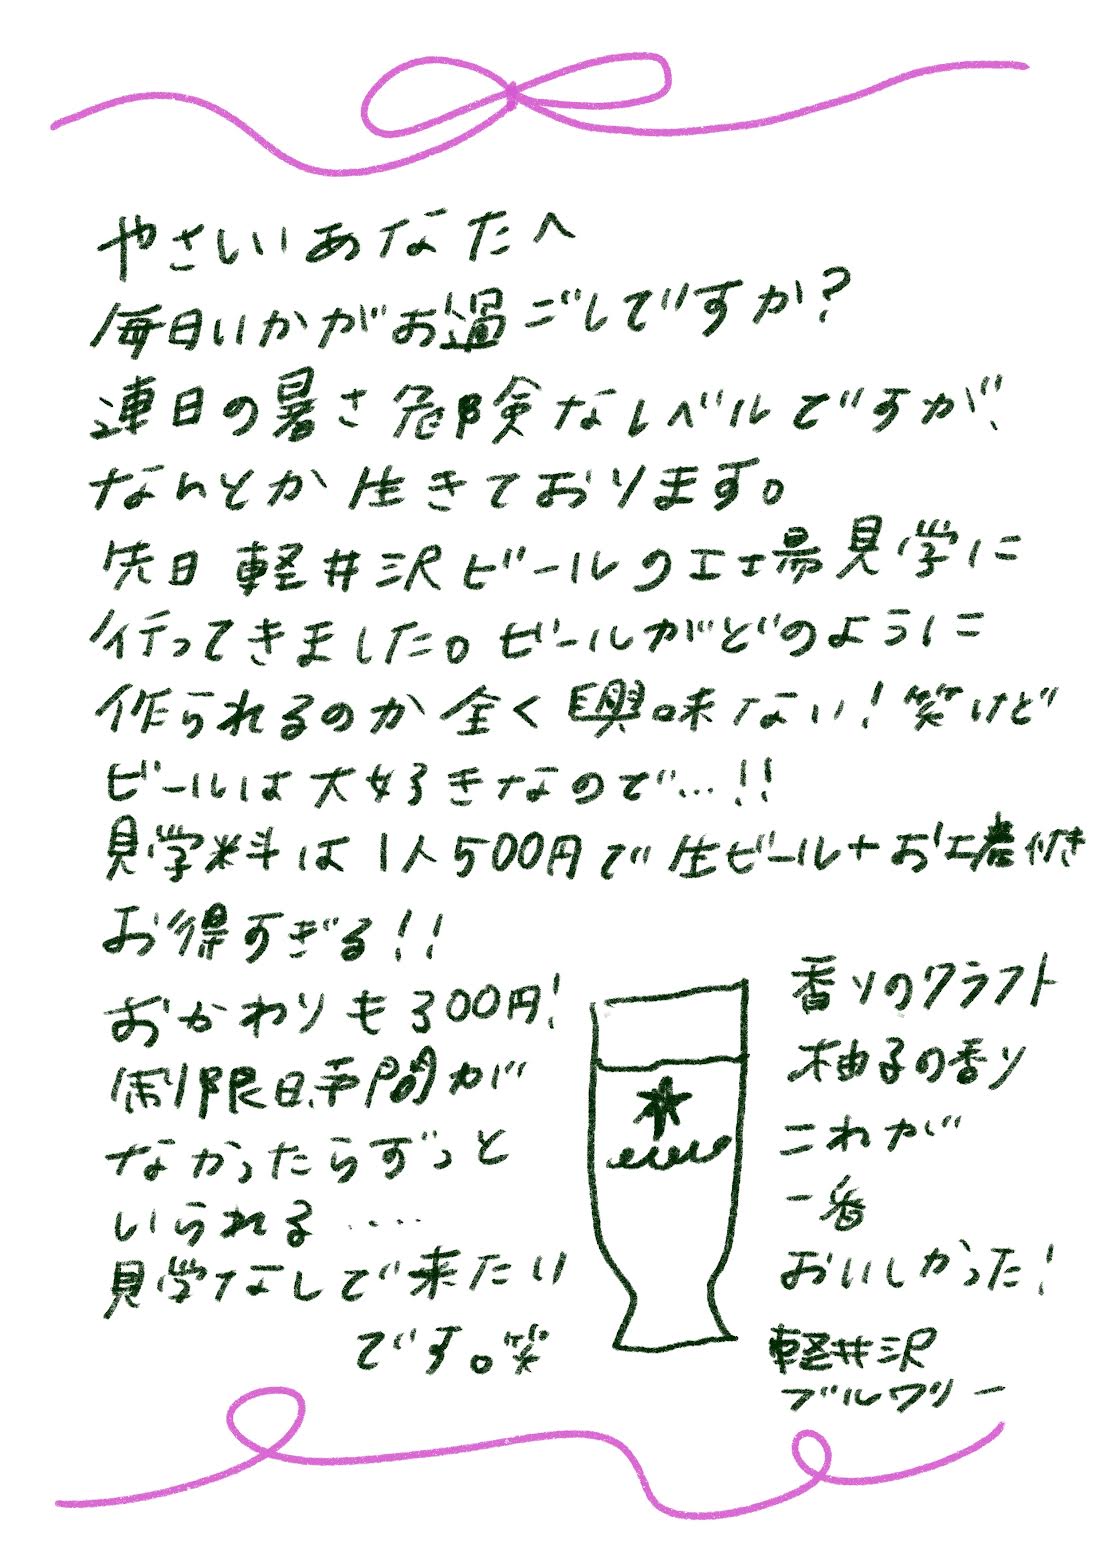 やさしいあなたへ
毎日いかがお過ごしですか?
連日の暑さ危険なレベルですが、
なんとか生きております。
先日軽井沢ビールの工場見学に
行ってきました。ビールがどのように
作られるのか全く興味ない!笑けど
ビールは大好きなので…!!
見学料は1人500円で生ビール+お土産付き
お得すぎる!!
おかわりも300円!
制限時間が
なかったらずっと
いられる····
見学なしで来たい
です。笑
香りのクラフト
柚子の香り
これが
一番
おいしかった!
軽井沢
ブルワリー